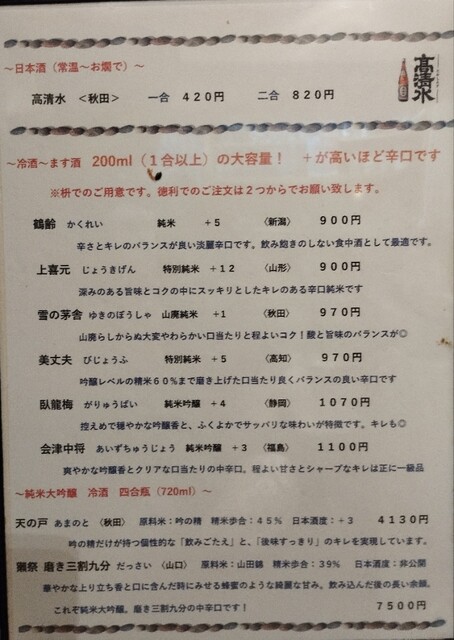 ～日本酒（常温～お燗で）～
高清水
高清水 ＜秋田＞ 一合 ４２０円 二合 ８２０円
～冷酒～ます酒 200ml（１合以上）の大容量！ ＋が高いほど辛口です
※枡でのご用意です。徳利でのご注文は２つからでお願い致します。
鶴齢 かくれい 純米 ＋５ 〈新潟〉 ９００円
辛さとキレのバランスが良い淡麗辛口です。飲み飽きのしない食中酒として最適です。
上喜元 じょうきげん 特別純米 ＋１２ 〈山形〉 ９００円
深みのある旨味とコクの中にスッキリとしたキレのある辛口純米です
雪の茅舎 ゆきのぼうしゃ 山廃純米 ＋１ 〈秋田〉 ９７０円
山廃らしからぬ大変やわらかい口当たりと程よいコク！酸と旨味のバランスが◎
美丈夫 びじょうふ 特別純米 ＋５ 〈高知〉 ９７０円
吟醸レベルの精米６０％まで磨き上げた口当たり良くバランスの良い辛口です
臥龍梅 がりゅうばい 純米吟醸 ＋４ 〈静岡〉 １０７０円
控えめで穏やかな吟醸香と、ふくよかでサッパリな味わいが特徴です。キレも◎
会津中将 あいずちゅうじょう 純米吟醸 ＋３ 〈福島〉 １１００円
爽やかな吟醸香とクリアな口当たりの中辛口。程よい甘さとシャープなキレは正に一級品
～純米大吟醸 冷酒 四合瓶（720ml）～
天の戸 あまのと 〈秋田〉 原料米：吟の精 精米歩合：４５％ 日本酒度：＋３ ４１３０円
吟の精だけが持つ個性的な「飲みごたえ」と、「後味すっきり」のキレを実現しています。
獺祭 磨き三割九分 だっさい 〈山口〉 原料米：山田錦 精米歩合：３９％ 日本酒度：非公開
華やかな上り立ち香と口に含んだ時にみせる蜂蜜のような綺麗な甘み。飲み込んだ後の長い余韻。
これぞ純米大吟醸。磨き三割九分の中辛口です！ ７５００円